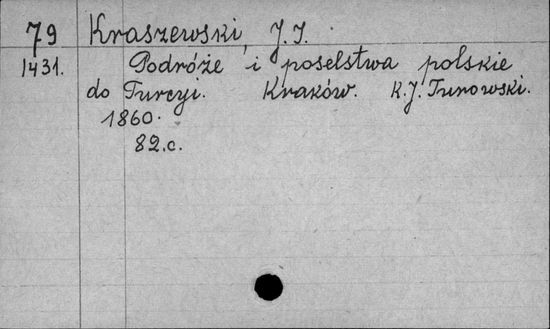 79 Kraszewski, J. I.
1431. Podróże i poselstwa polskie
do Turcyi. Kraków. K. J. Turowski.
1860.
82.c.